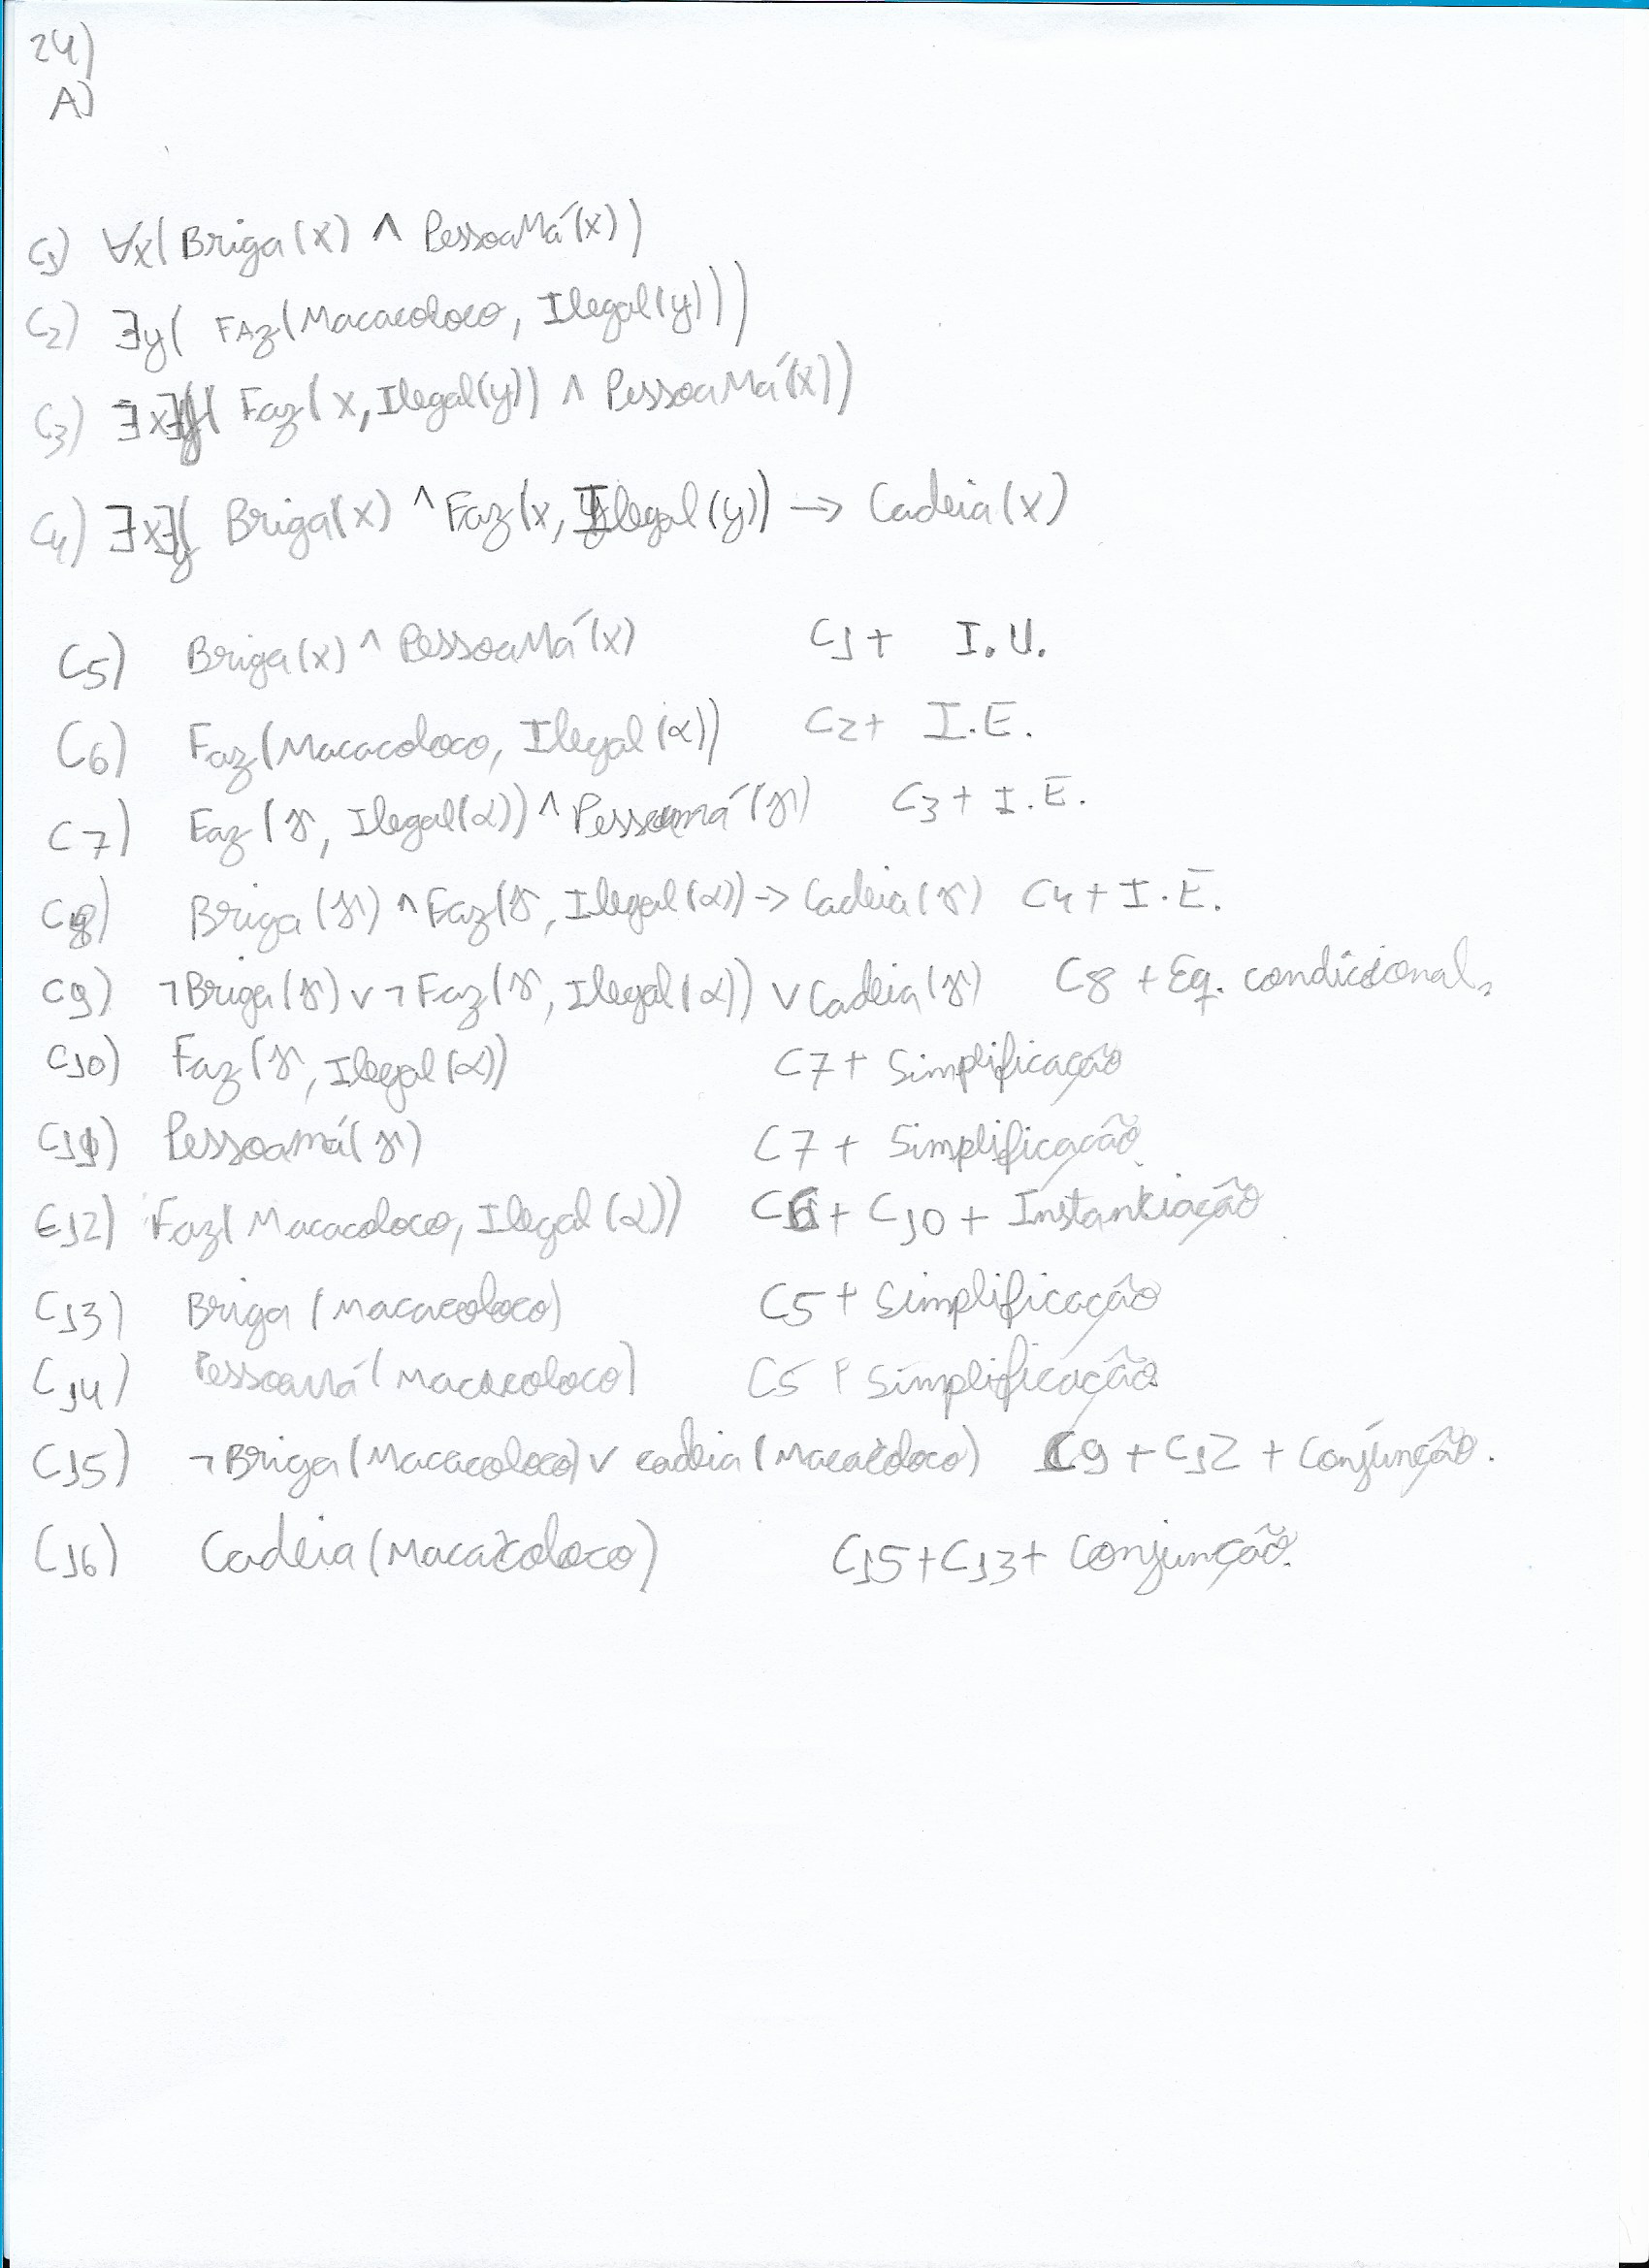 24)
A)
C1) ∀x(Briga(x) ∧ PessoaMá(x))
C2) ∃y( FAz(Macacoloco, Ilegal(y)))
C3) ∃x∃y( Faz(x, Ilegal(y)) ∧ PessoaMá(x))
C4) ∃x∃y( Briga(x) ∧ Faz(x, Ilegal(y)) → Cadeia(x)
C5) Briga(x) ∧ PessoaMá(x) C1+ I.U.
C6) Faz(Macacoloco, Ilegal(α)) C2+ I.E.
C7) Faz(γ, Ilegal(α)) ∧ Pessoamá(γ) C3+I.E.
C8) Briga(γ) ∧ Faz(γ, Ilegal(α)) → Cadeia(γ) C4+I.E.
C9) ¬Briga(γ) ∨ ¬Faz(γ, Ilegal(α)) ∨ Cadeia(γ) C8 + Eq. condicional.
C10) Faz(γ, Ilegal(α)) C7+ Simplificação
C11) Pessoamá(γ) C7+ Simplificação
C12) Faz(Macacoloco, Ilegal(α)) C6+ C10 + Instanciação
C13) Briga(Macacoloco) C5+ Simplificação
C14) PessoaMá(Macacoloco) C5+ Simplificação
C15) ¬Briga(Macacoloco) ∨ cadeia(Macacoloco) C9+C12 + Conjunção.
C16) Cadeia(Macacoloco) C15+C13+ Conjunção.